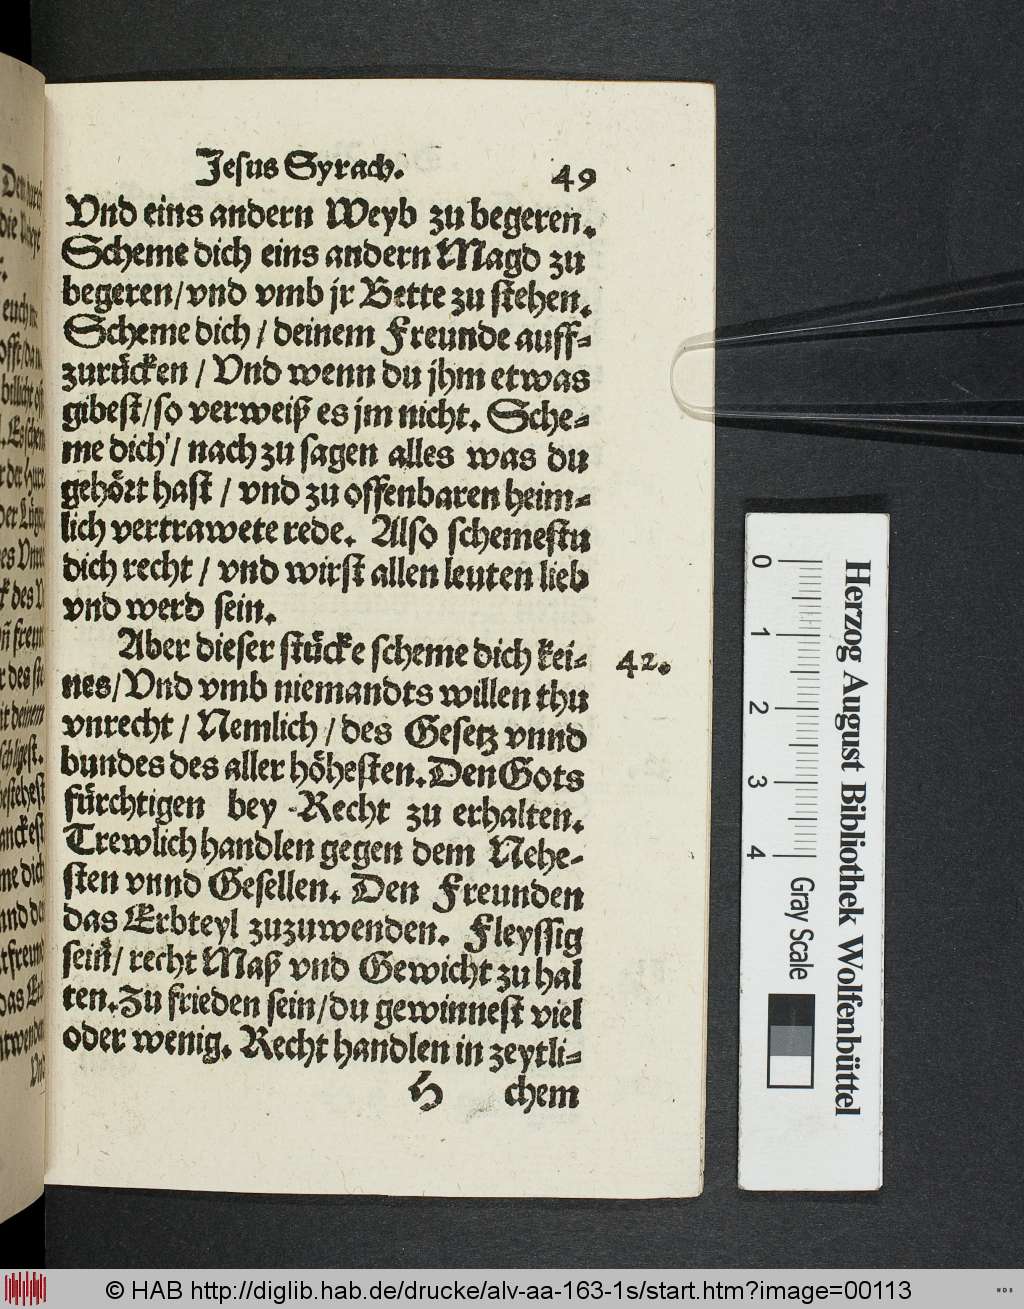 Jesus Syrach. 49
Vnd eins andern Weyb zu begeren.
Scheme dich eins andern Magd zu
begeren/vnd vmb jr Bette zu stehen.
Scheme dich / deinem Freunde auff-
zurücken / Vnd wenn du jhm etwas
gibest/so verweiß es jm nicht. Sche-
me dich / nach zu sagen alles was du
gehört hast / vnd zu offenbaren heim-
lich vertrawete rede. Also schemestu
dich recht / vnd wirst allen leuten lieb
vnd werd sein.
Aber dieser stücke scheme dich kei- 42.
nes/Vnd vmb niemandts willen thu
vnrecht / Nemlich / des Gesetz vnnd
bundes des aller höhesten. Den Gots
fürchtigen bey Recht zu erhalten.
Trewlich handlen gegen dem Nehe-
sten vnnd Gesellen. Den Freunden
das Erbteyl zuzuwenden. Fleyssig
sein/ recht Maß vnd Gewicht zu hal
ten. Zu frieden sein/du gewinnest viel
oder wenig. Recht handlen in zeytli-
H chem
0 1 2 3 4
Gray Scale
Herzog August Bibliothek Wolfenbüttel
© HAB http://diglib.hab.de/drucke/alv-aa-163-1s/start.htm?image=00113